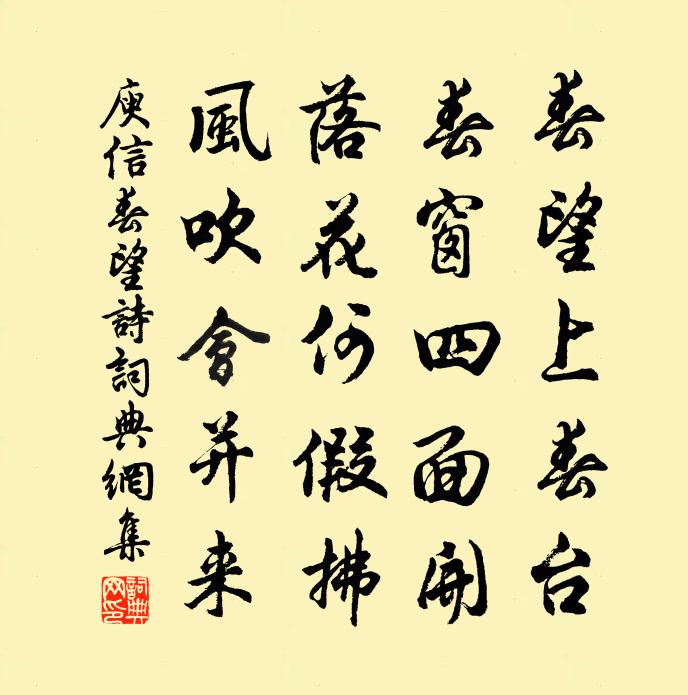 春望上春台
春窗四面開
落花何假拂
風吹會并来
庾信春望詩詞典網集
詞典網印